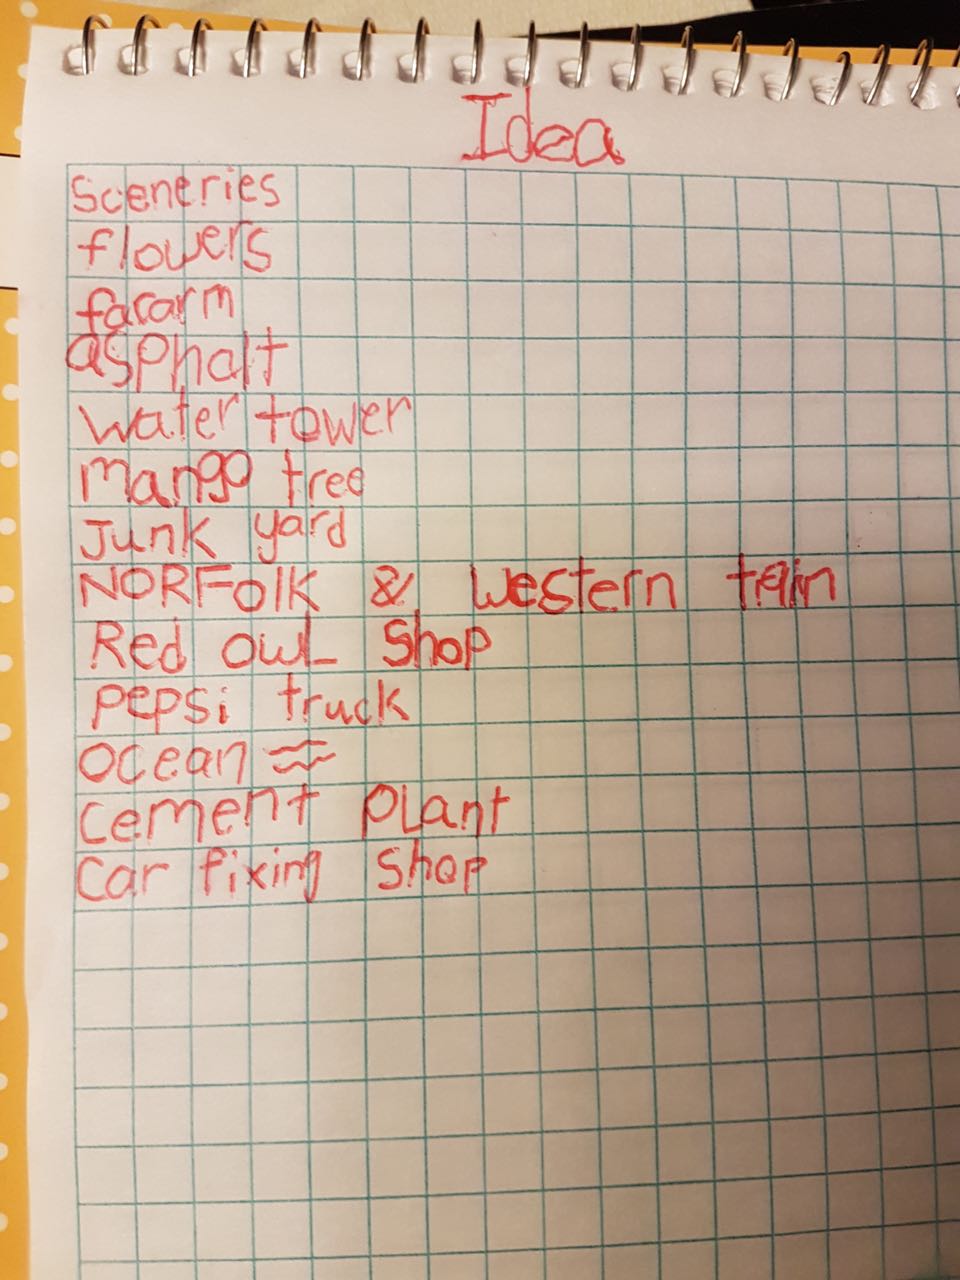 Idea
Sceneries
flowers
fararm
asphalt
water tower
mango tree
Junk yard
NORFolk & Western train
Red owL Shop
pepsi truck
ocean
cement pLant
Car fixing Shop